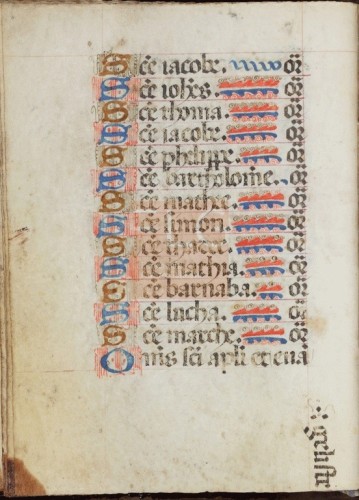 Sc̄e iacobe. or̄
Sc̄e ioh̄es. or̄
Sc̄e thoma. or̄
Sc̄e iacobe. or̄
Sc̄e philippe. or̄
Sc̄e bartholome. or̄
Sc̄e mathee. or̄
Sc̄e simon. or̄
Sc̄e thadee. or̄
Sc̄e mathia. or̄
Sc̄e barnaba. or̄
Sc̄e lucha. or̄
Sc̄e marche. or̄
Om̄s sc̄i apl̄i et eua